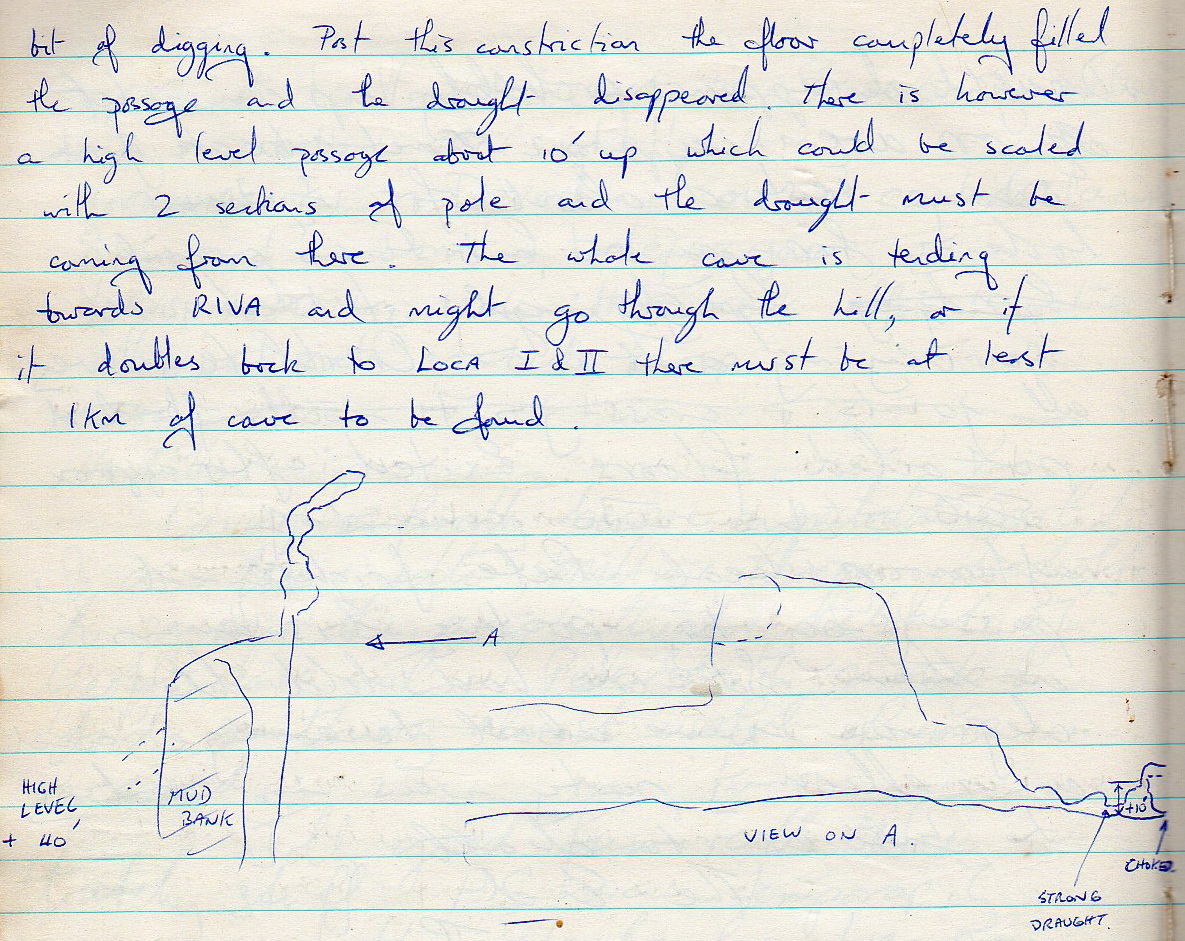 bit of digging. Past this constriction the floor completely filled
the passage and the draught disappeared. There is however
a high level passage about 10' up which could be scaled
with 2 sections of pole and the draught must be
coming from there. The whole cave is tending
towards RIVA and might go through the hill, or if
it doubles back to LOCA I & II there must be at least
1 km of cave to be found.
A
HIGH
LEVEL
+ 40'
MUD
BANK
+10'
VIEW ON A.
CHOKE
STRONG
DRAUGHT.